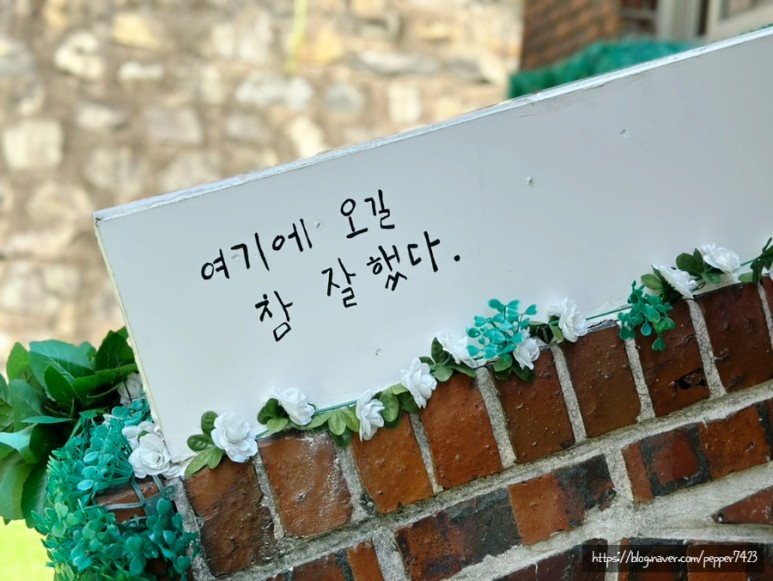 여기에 오길
참 잘했다.
https://blog.naver.com/pepper7423